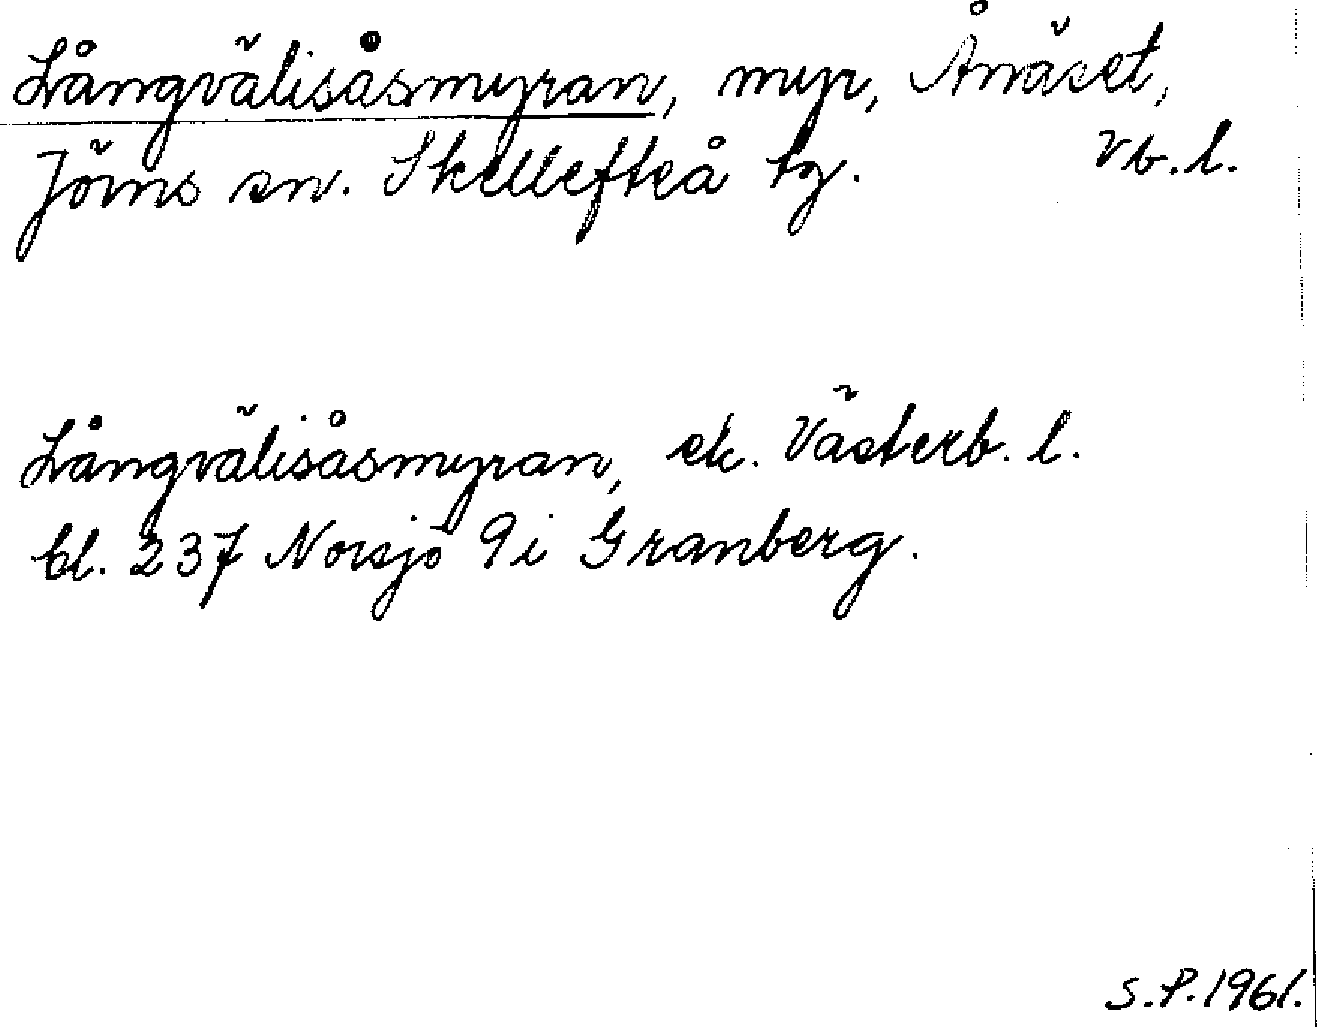 Långvälisåsmyran, myr, Ånäset,
Jörns sn. Skellefteå tg. Vb.l.
Långvälisåsmyran, ek. Västerb. l.
bl. 237 Norsjö 9i Granberg.
S.P.1961.